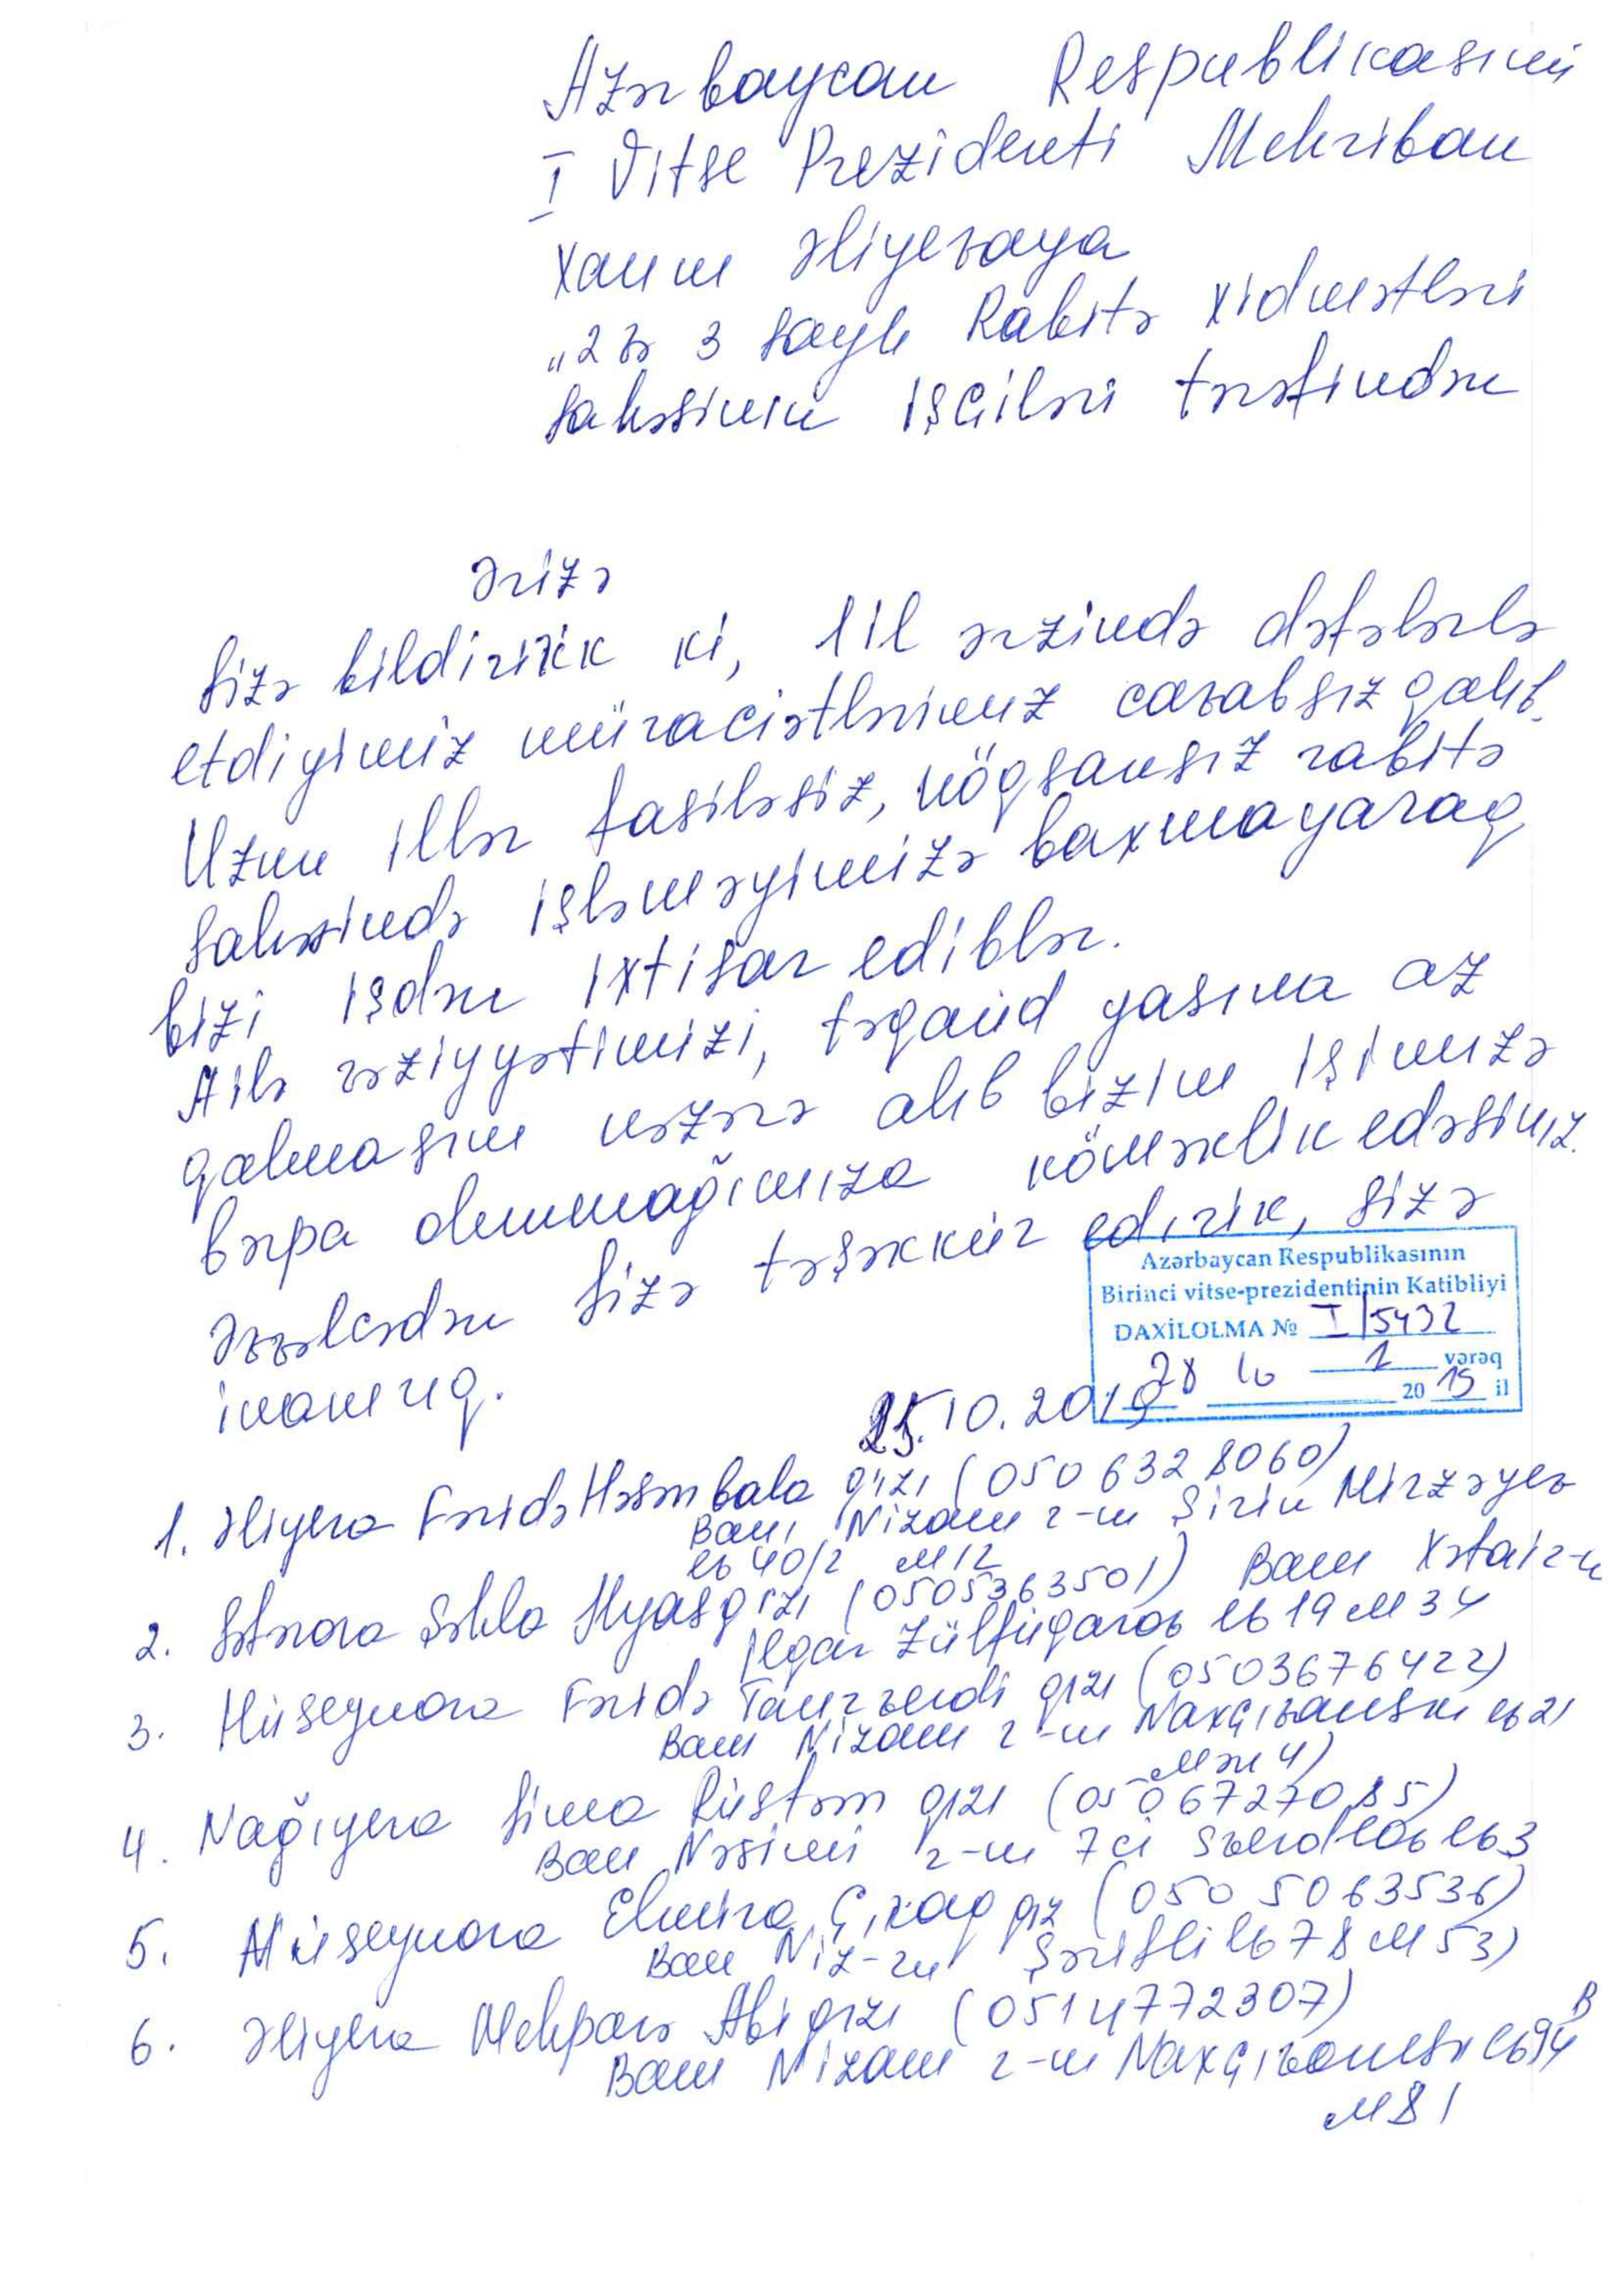 Azərbaycan Respublikasının
I Vitse Prezidenti Mehriban
Xanım Əliyevaya
"2 və 3 saylı Rabitə xidmətləri
sahəsinin işçiləri tərəfindən
Ərizə
Sizə bildiririk ki, 1 il ərzində dəfələrlə
etdiyimiz müraciətlərimiz cavabsız qalıb.
Uzun illər fasiləsiz, nögsansız rabitə
sahəsində işləməyimizə baxmayaraq
bizi işdən ixtisar ediblər.
Ailə vəziyyətimizi, təqaüd yaşına az
qalmasını nəzərə alıb bizim işimizə
bərpa olunmağımıza köməklik edəsiniz.
Əvvəlcədən sizə təşəkkür edirik, sizə
inanırıq.
Azərbaycan Respublikasının
Birinci vitse-prezidentinin Katibliyi
DAXİLOLMA № I/5432
1 vərəq
28 10 2019 il
25.10.2019
1. Əliyeva Fəridə Həsənbala qızı (050 632 8060)
Bakı, Nizami r-nu Şirin Mirzəyev
ev 40/2 m 12
2. Səfərova Şəlalə İlyas qızı (0505363501) Bakı Xətai r-n
İlqar Zülfüqarov ev 19 m 34
3. Hüseynova Fəridə Tanrıverdi qızı (0503676422)
Bakı Nizami r-nu Naxçıvanski ev 21
mən 4)
4. Nağıyeva Sima Rüstəm qızı (0506727085)
Bakı Nəsimi r-nu 7ci ev 3
5. Hüseynova Elmira Çıraq qız (050 5063536)
Bakı Niz-rnu Şərifli ev 78 m 53)
6. Əliyeva Mehparə Abı qızı (0514772307)
Bakı Nizami r-nu Naxçıvanski ev 94 B
m 81